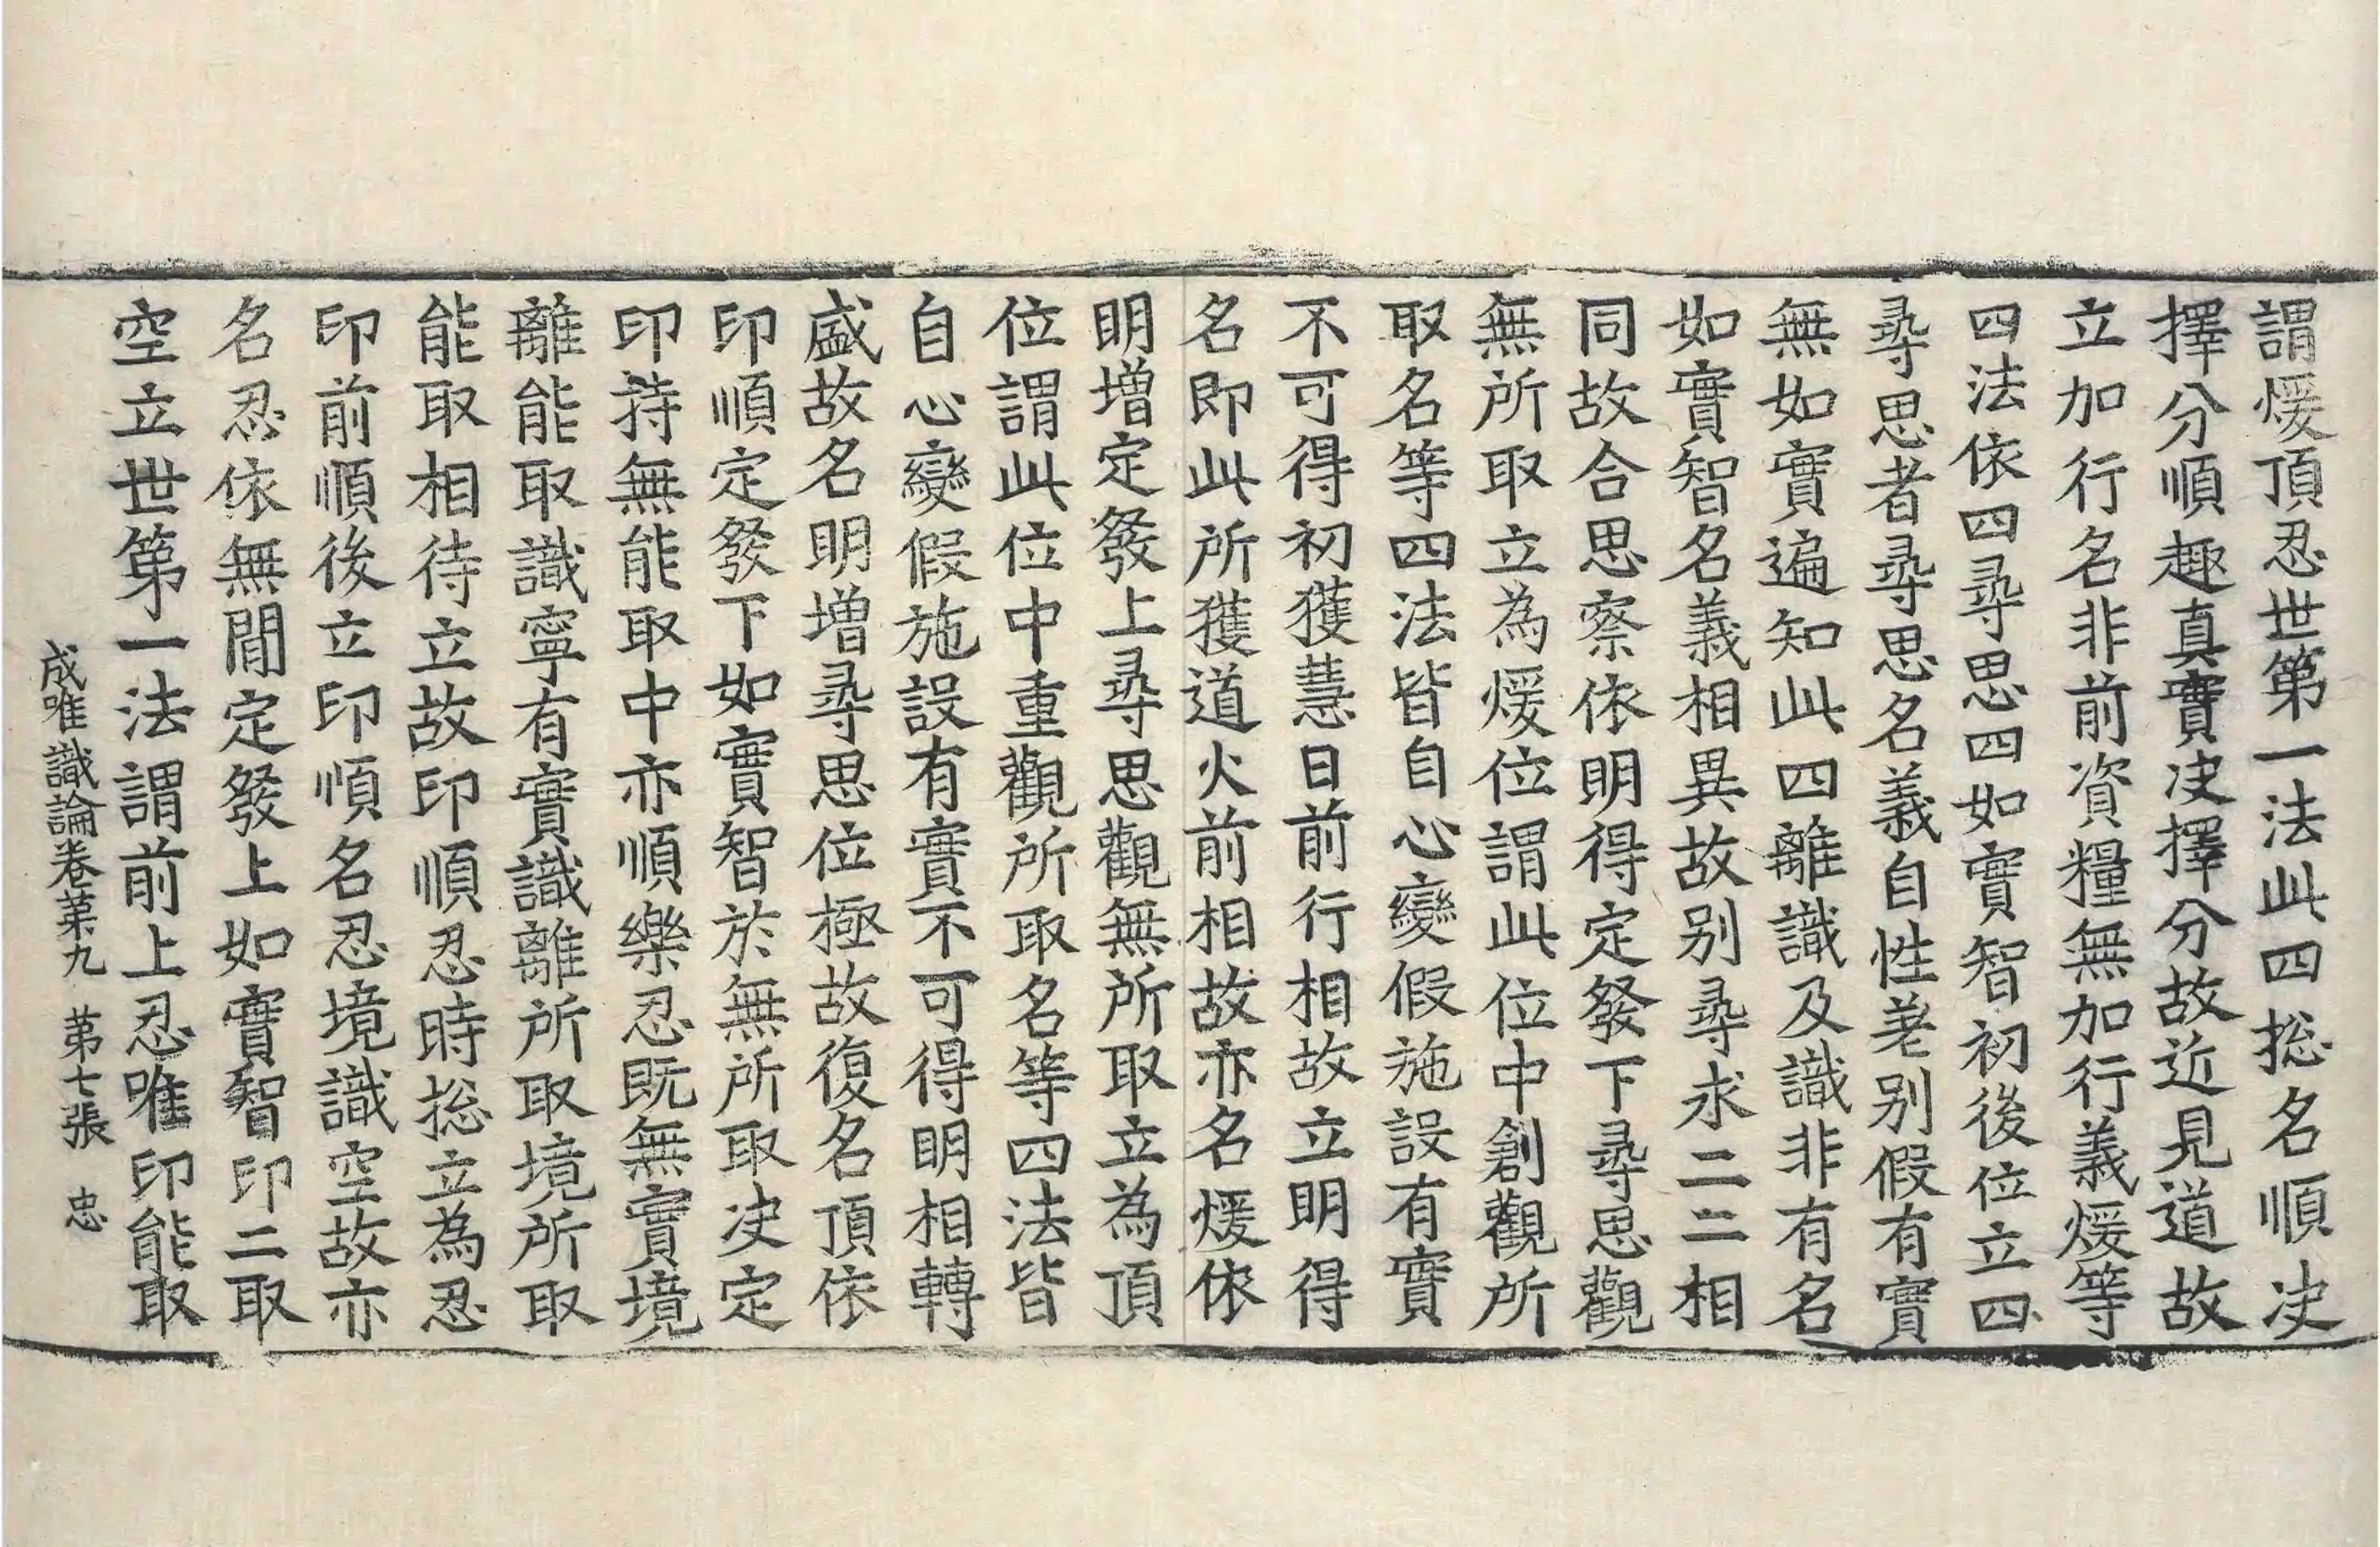 謂煖頂忍世第一法此四揔名順决
擇分順趣真實决擇分故近見道故
立加行名非前資糧無加行義煖等
四法依四尋思四如實智初後位立四
尋思者尋思名義自性差别假有實
無如實遍知此四離識及識非有名
如實智名義相異故别尋求二二相
同故合思察依明得定發下尋思觀
無所取立為煖位謂此位中創觀所
取名等四法皆自心變假施設有實
不可得初獲慧日前行相故立明得
名即此所獲道火前相故亦名煖依
明增定發上尋思觀無所取立為頂
位謂此位中重觀所取名等四法皆
自心變假施設有實不可得明相轉
盛故名明增尋思位極故復名頂依
印順定發下如實智於無所取决定
印持無能取中亦順樂忍既無實境
離能取識寧有實識離所取境所取
能取相待立故印順忍時揔立為忍
印前順後立印順名忍境識空故亦
名忍依無間定發上如實智印二取
空立世第一法謂前上忍唯印能取
成唯識論卷苐九 苐七張 忠